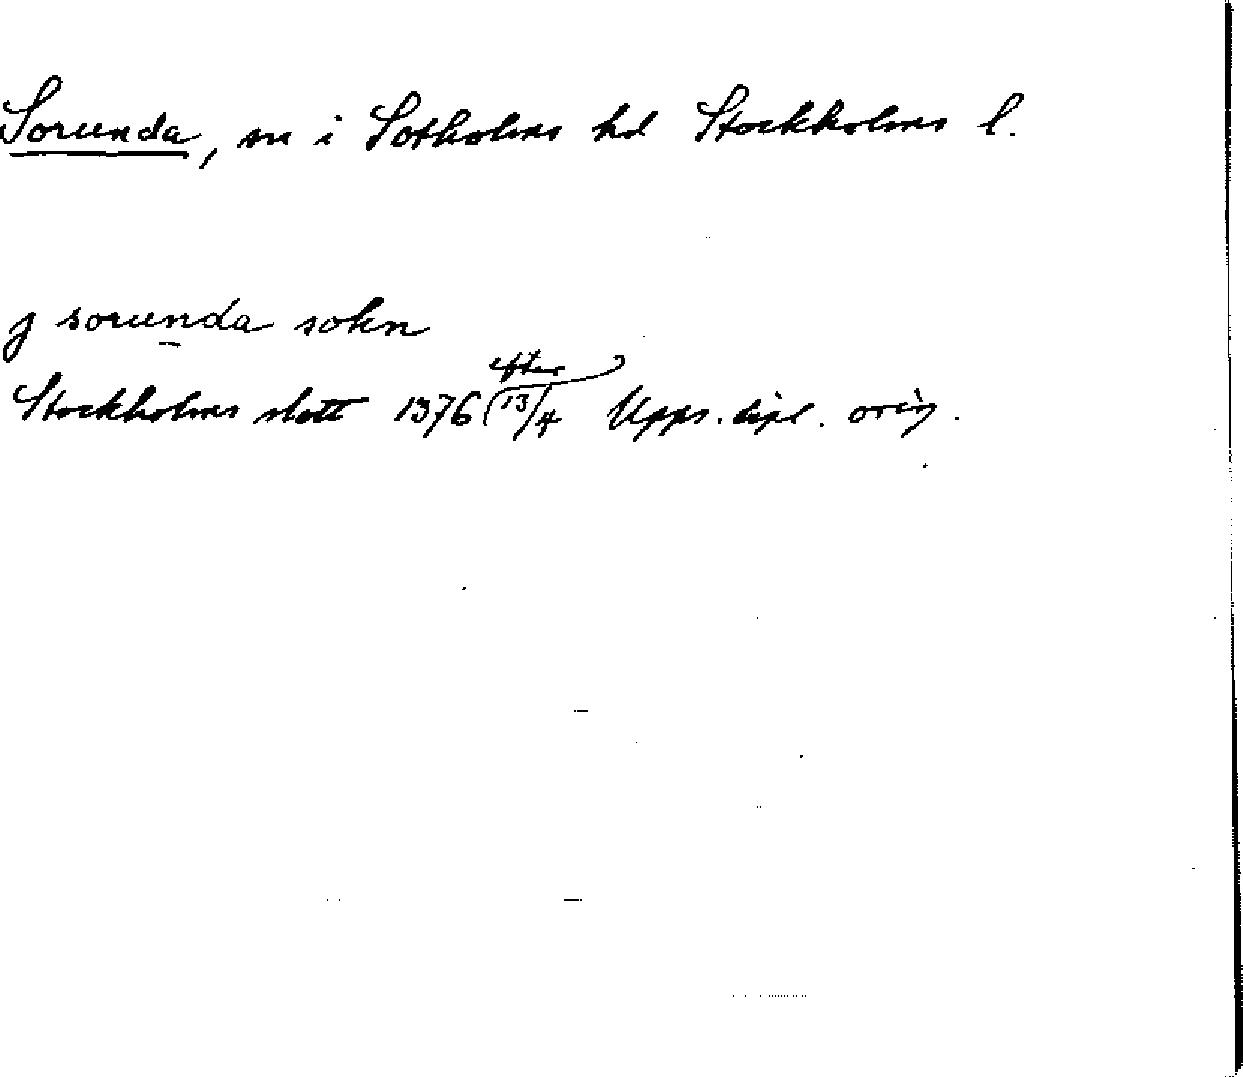 Sorunda, sn i Sotholms hd Stockholms l.
j sorunda sokn
Stockholms slott 1376 (efter 13/4) Upps. dipl. orig.